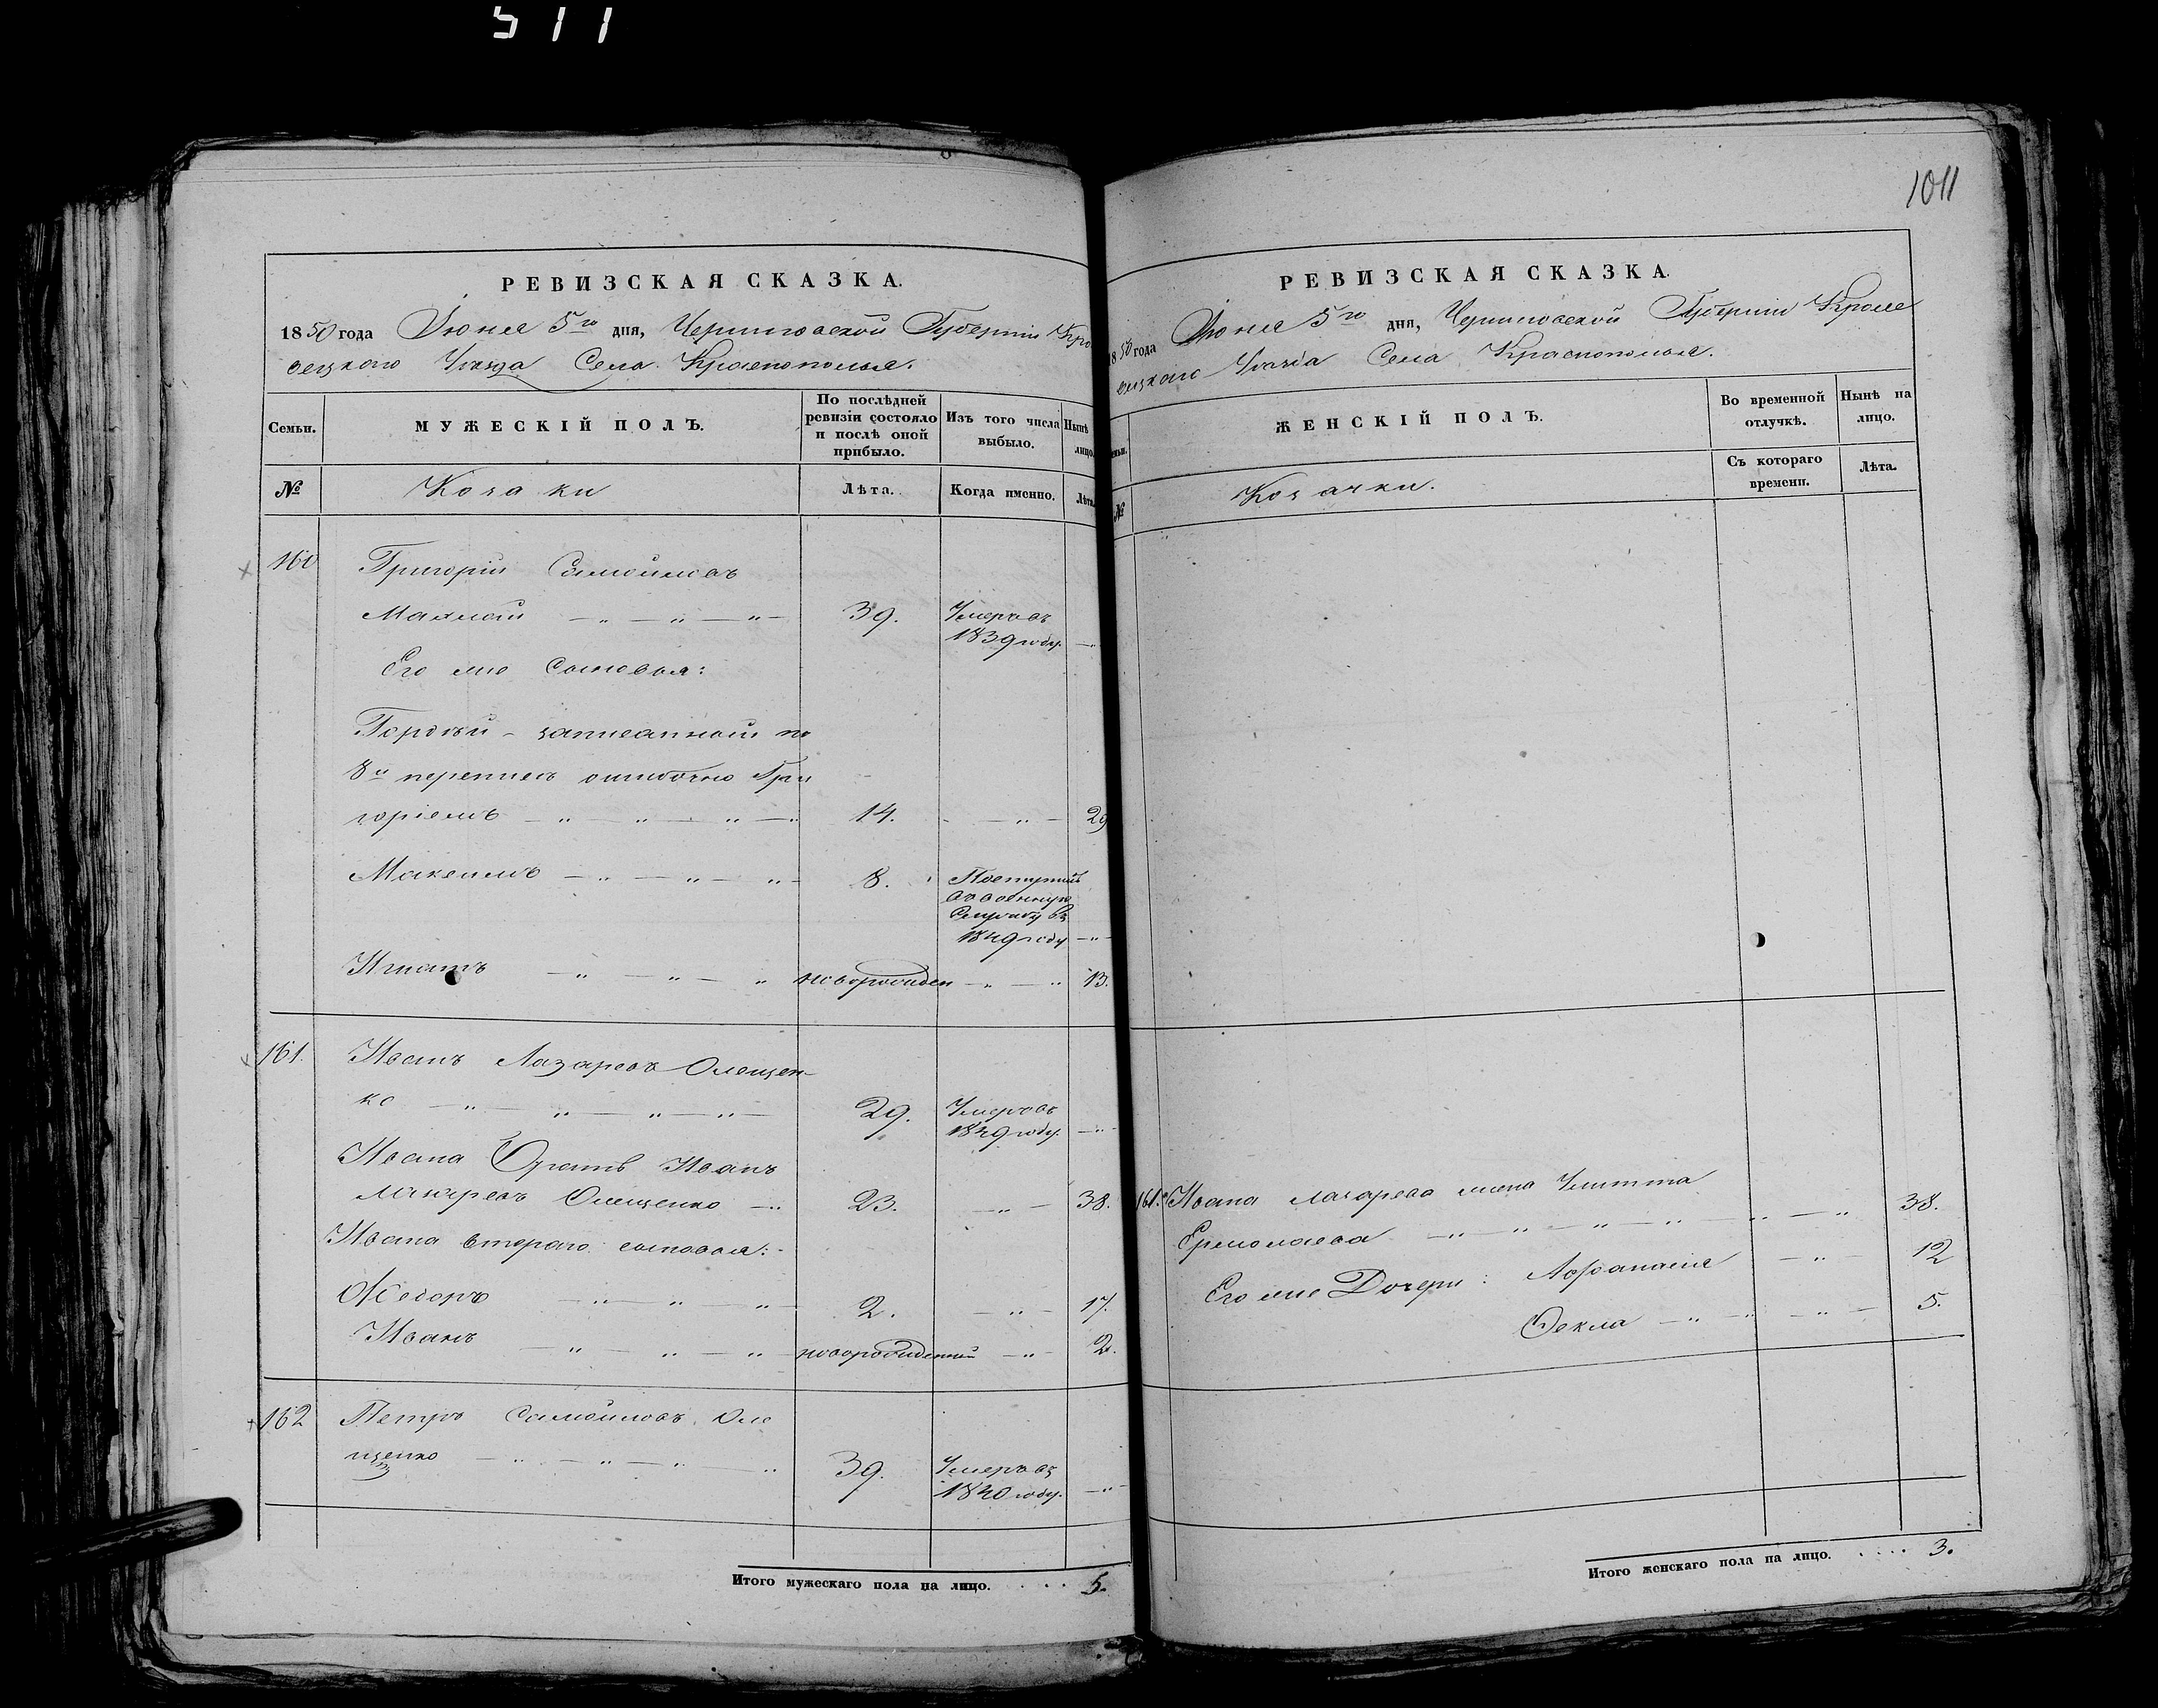 511
1011
РЕВИЗСКАЯ СКАЗКА.
1850 года Июня 5го дня, Черниговской Губерніи Кро
вецкаго Уезда Села Краснополья.
Семьи.
МУЖЕСКІЙ ПОЛЪ.
По послѣдней ревизіи состояло и послѣ оной прибыло.
Изъ того числа выбыло.
Нынѣ лицо.
№
Козаки
Лѣта.
Когда именно.
Лѣта.
160
Григорій Самойловъ
39. Умеръ въ
1839 году.
Его же Сыновья:
Гордѣй - записанный по
8й переписи ошибочно Гри
горіемъ 14. 29
Максимъ 8. Поступилъ
въ военную
Службу въ
1849 году
Игнатъ новорожден 13.
161. Иванъ Лазаревъ Олещен-
ко 29. Умеръ въ
1849 году.
Ивана Братъ Иванъ
Лазаревъ Олещенко 23. 38.
Ивана втораго сыновья:
Федоръ 2. 17.
Иванъ новорожденный 2.
162 Петръ Самойловъ Оле
щенко 39. Умеръ въ
1840 году.
Итого мужескаго пола на лицо. . . . . 5.
РЕВИЗСКАЯ СКАЗКА.
1850 года Июня 5го дня, Черниговской Губерніи Кроле
вецкаго Уезда Села Краснополья.
ЖЕНСКІЙ ПОЛЪ.
Во временной отлучкѣ.
Нынѣ на лицо.
№
Козачки.
Съ котораго времени.
Лѣта.
161. Ивана Лазарева жена Улитта
Ермолаева 38.
Его же Дочери: Афанасія 12
Фекла 5.
Итого женскаго пола на лицо. . . . . 3.